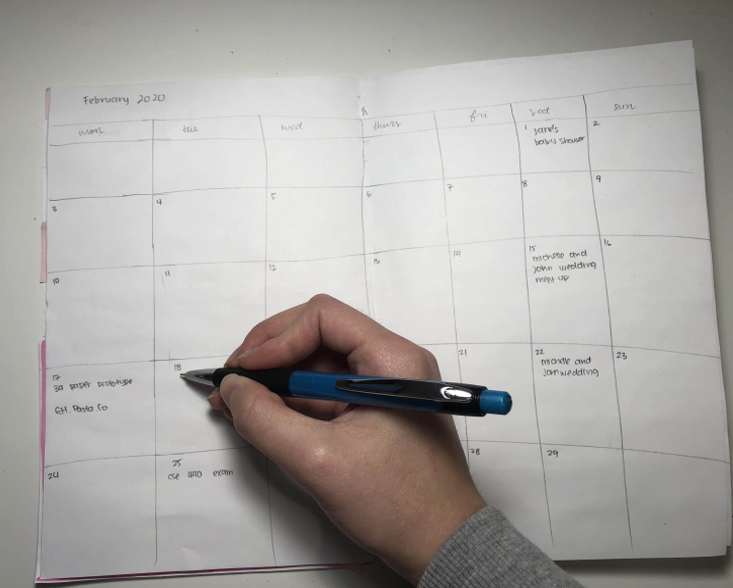 February 2020
mon
tue
wed
thurs
fri
sat
sun
1
baby shower
2
3
4
5
6
7
8
9
10
11
12
13
14
15
michelle and
john wedding
meet up
16
17
3a. paper prototype
GH. Pasta Co
18
21
22
michelle and
john wedding
23
24
25
cse 440 exam
28
29